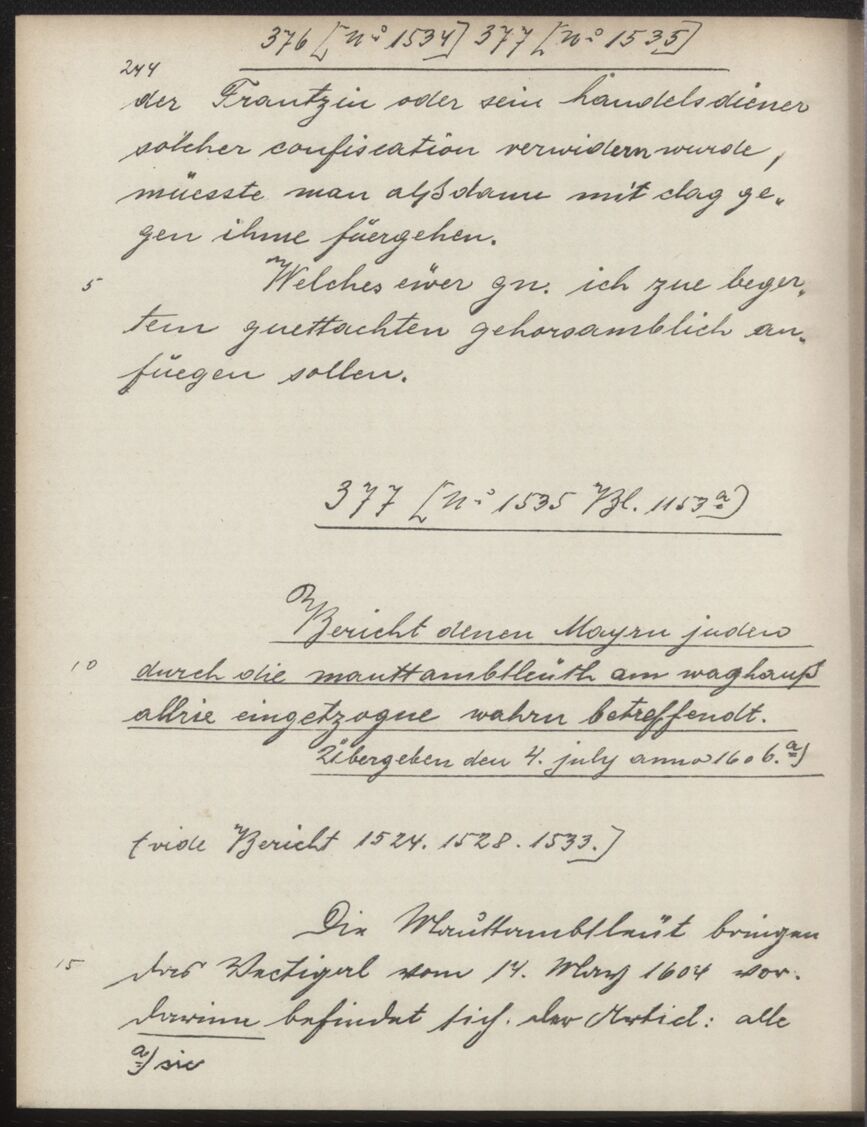 376 [Nº 1534] 377 [Nº 1535]
244
der Frantzin oder sein handelsdiener
solcher confiscation verwidern wurde,
müesste man alßdann mit clag ge„
gen ihme füergehen.
5 Welches ewer gn. ich zue beger„
tem guettachten gehorsamblich an„
füegen sollen.
377 [Nº 1535 Bl. 1153ª)
Bericht denen Mayrn juden
10 durch die mauttambtleüth am waghauß
allrie eingetzogne wahrn betreffendt.
Übergeben den 4. july anno 1606.ª)
(vide Bericht 1524. 1528. 1533.]
Die Mauttambtleüt bringen
15 das Vectigal vom 14. May 1604 vor.
darinn befindet sich der Articl: alle
a) sic